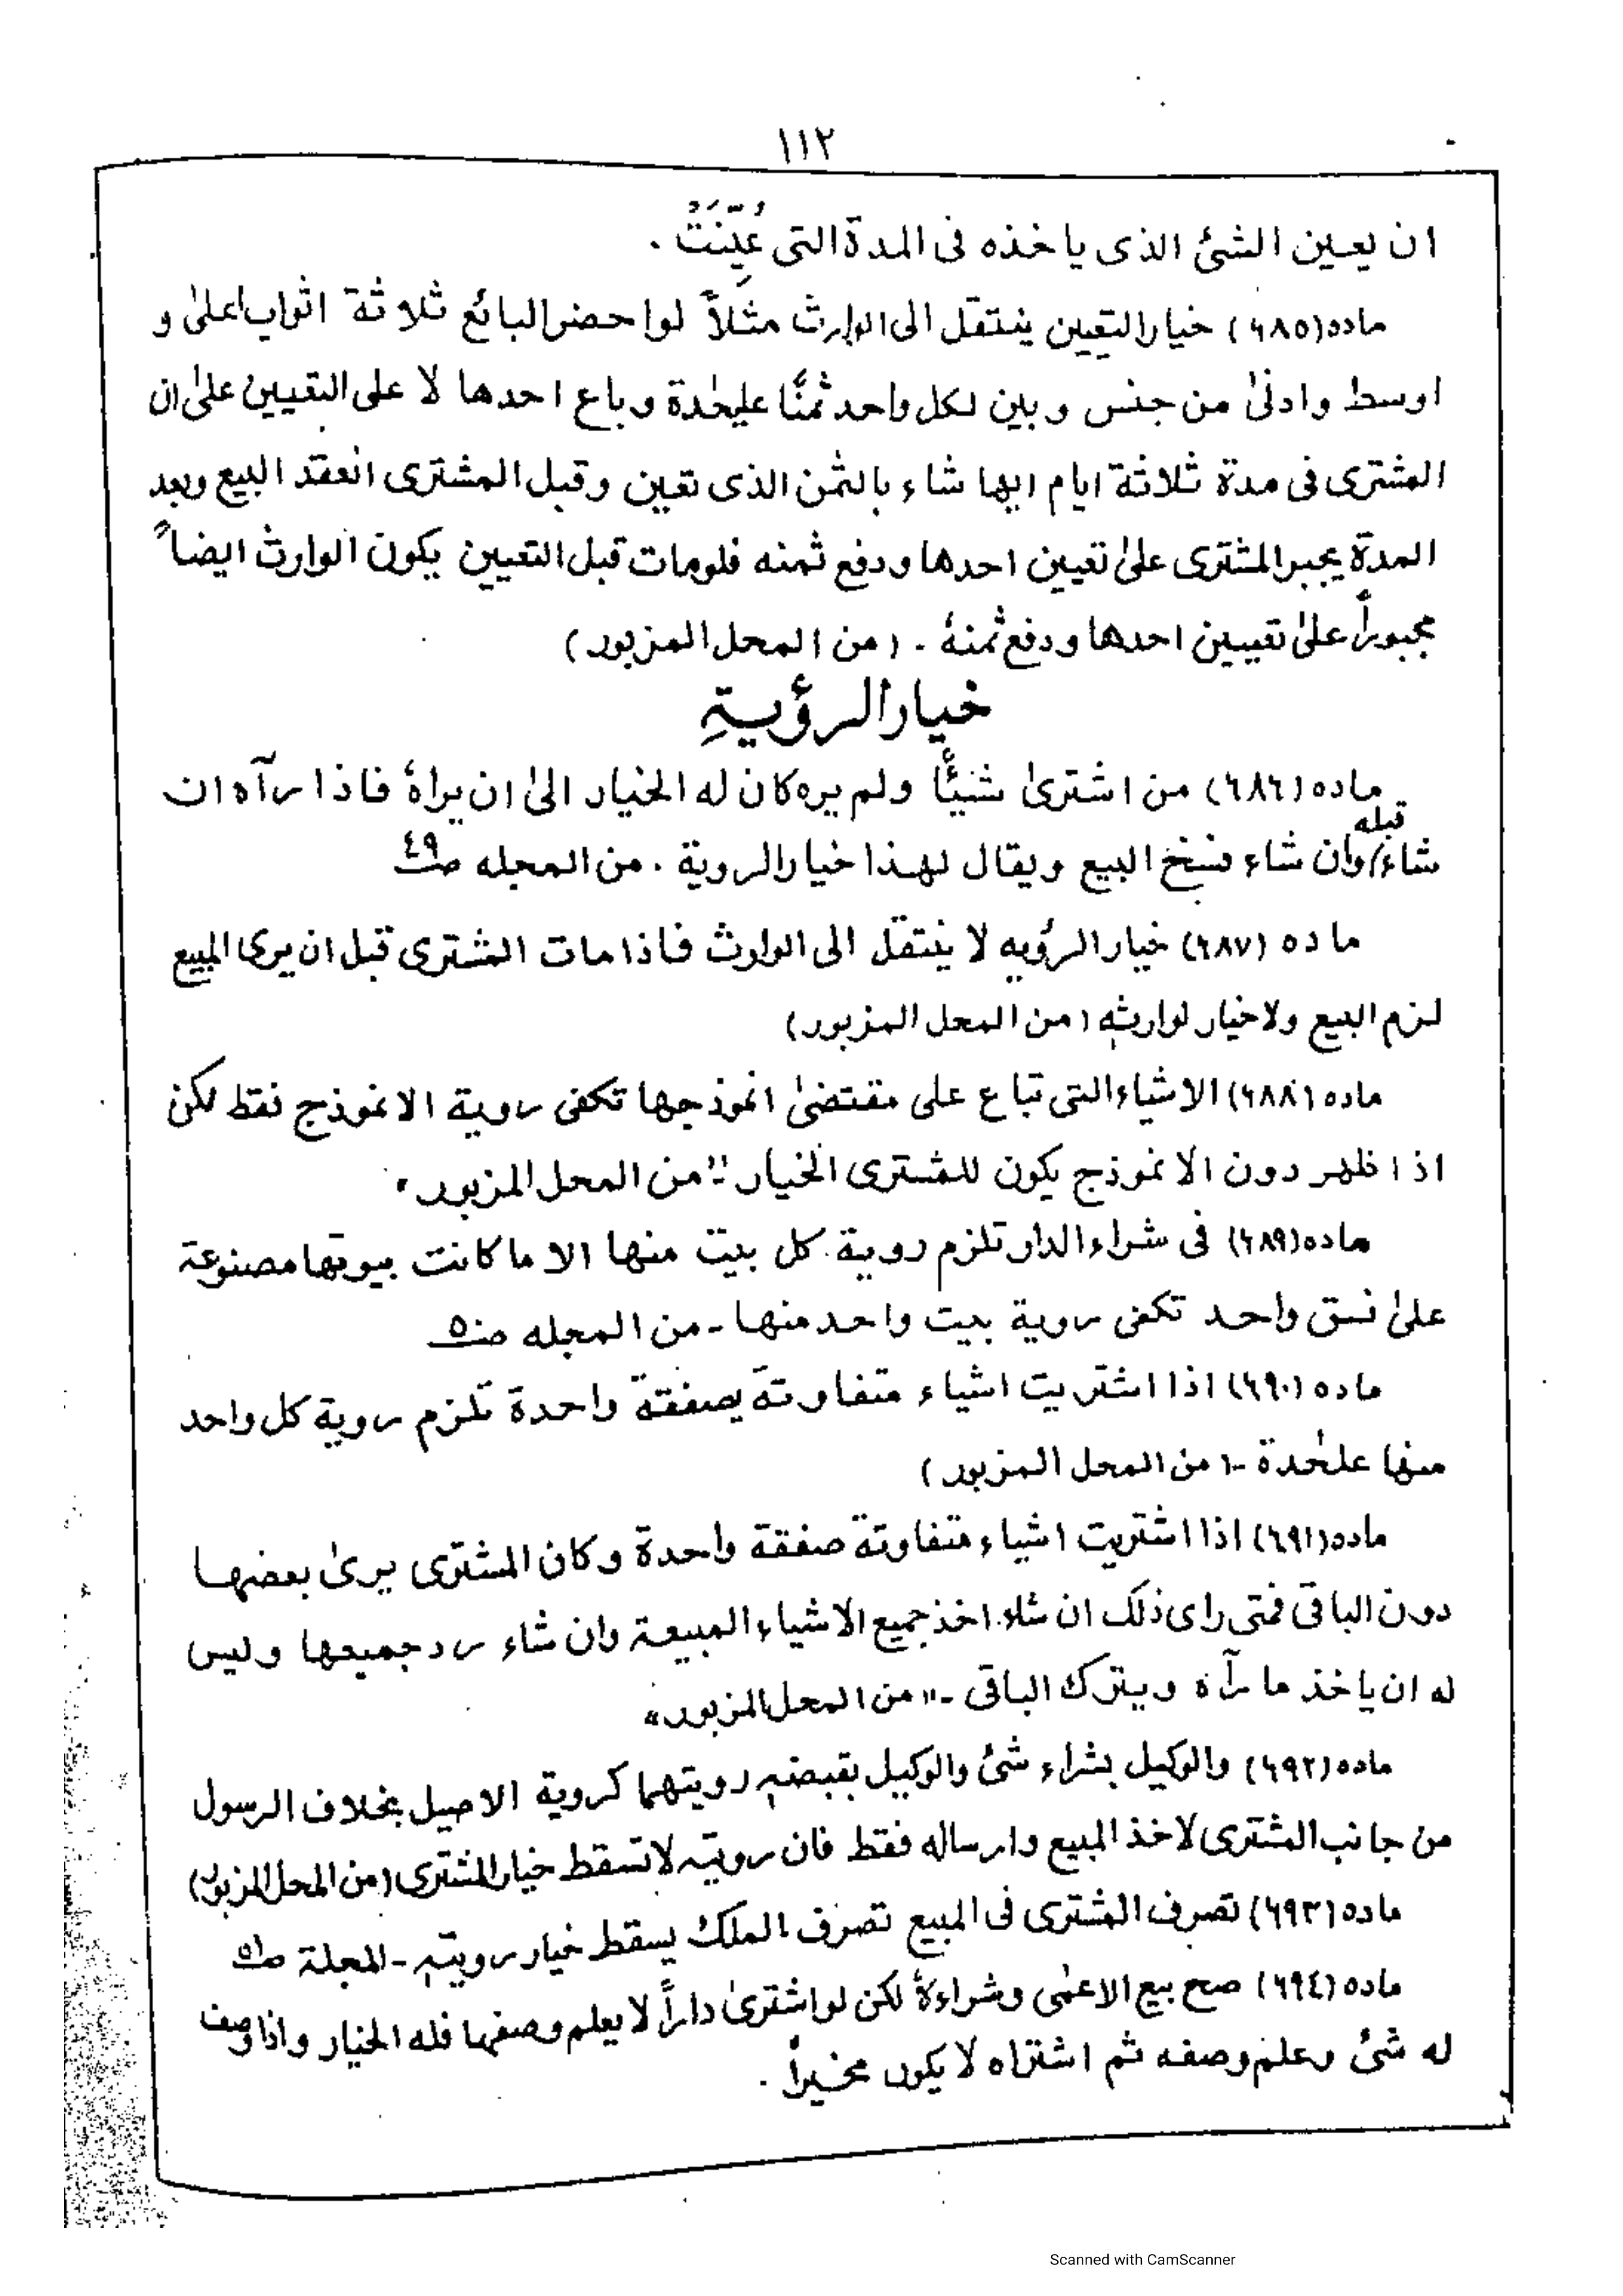 ١١٢
ان يعين الشئ الذى ياخذه فى المدة التى عُيِّنَتْ .
ماده (٦٨٥) خيار التعيين ينتقل الى الوارث مثلاً لو احضر البائع ثلاثة اثواب اعلىٰ و
اوسط وادنىٰ من جنس وبين لكل واحد ثمنًا عليحٰدة وباع احدها لا على التعيين علىٰ ان
المشترى فى مدة ثلاثة ايام ايها شاء بالثمن الذى تعين وقبل المشترى انعقد البيع وبعد
المدة يجبر المشترى علىٰ تعيين احدها ودفع ثمنه فلومات قبل التعيين يكون الوارث ايضاً
مجبوراً علىٰ تعيين احدها ودفع ثمنهٗ . (من المحل المزبور)
خيار الرؤيةِ
ماده (٦٨٦) من اشترىٰ شئيًا ولم يره كان له الخيار الىٰ ان يراهٗ فاذا رآه ان
شاء قبله وان شاء فسخ البيع ويقال لهذا خيار الروية . من المجله صـ٤٩
ماده (٦٨٧) خيار الرؤيه لا ينتقل الى الوارث فاذا مات المشترى قبل ان يرى المبيع
لزم البيع ولا خيار لوارثهٖ (من المحل المزبور)
ماده (٦٨٨) الاشياء التى تباع على مقتضىٰ انموذجها تكفى روية الانموذج فقط لكن
اذا ظهر دون الانموذج يكون للمشترى الخيار "من المحل المزبور"
ماده (٦٨٩) فى شراء الدار تلزم روية كل بيت منها الا ما كانت بيوتها مصنوعة
علىٰ نسق واحد تكفى روية بيت واحد منها - من المجله صـ٥٠
ماده (٦٩٠) اذا اشتريت اشياء متفاوتة بصفقة واحدة تلزم روية كل واحد
منها علحٰدة - (من المحل المزبور)
ماده (٦٩١) اذا اشتريت اشياء متفاوتة صفقة واحدة وكان المشترى يرىٰ بعضها
دون الباقى فمتى راى ذلك ان شاء اخذ جميع الاشياء المبيعة وان شاء رد جميعها وليس
له ان ياخذ ما رآه ويترك الباقى - "من المحل المزبور"
ماده (٦٩٢) والوكيل بشراء شئ والوكيل بقبضهٖ رويتهما كروية الاصيل بخلاف الرسول
من جانب المشترى لاخذ المبيع وارساله فقط فان رويته لا تسقط خيار المشترى (من المحل المزبور)
ماده (٦٩٣) تصرف المشترى فى المبيع تصرف الملك يسقط خيار رويتهٖ - المجلة صـ٥١
ماده (٦٩٤) صح بيع الاعمٰى وشراءهٗ لكن لو اشترىٰ داراً لا يعلم وصفها فله الخيار واذا وصف
له شئ وعلم وصفه ثم اشتراه لا يكون مخيراً .
Scanned with CamScanner